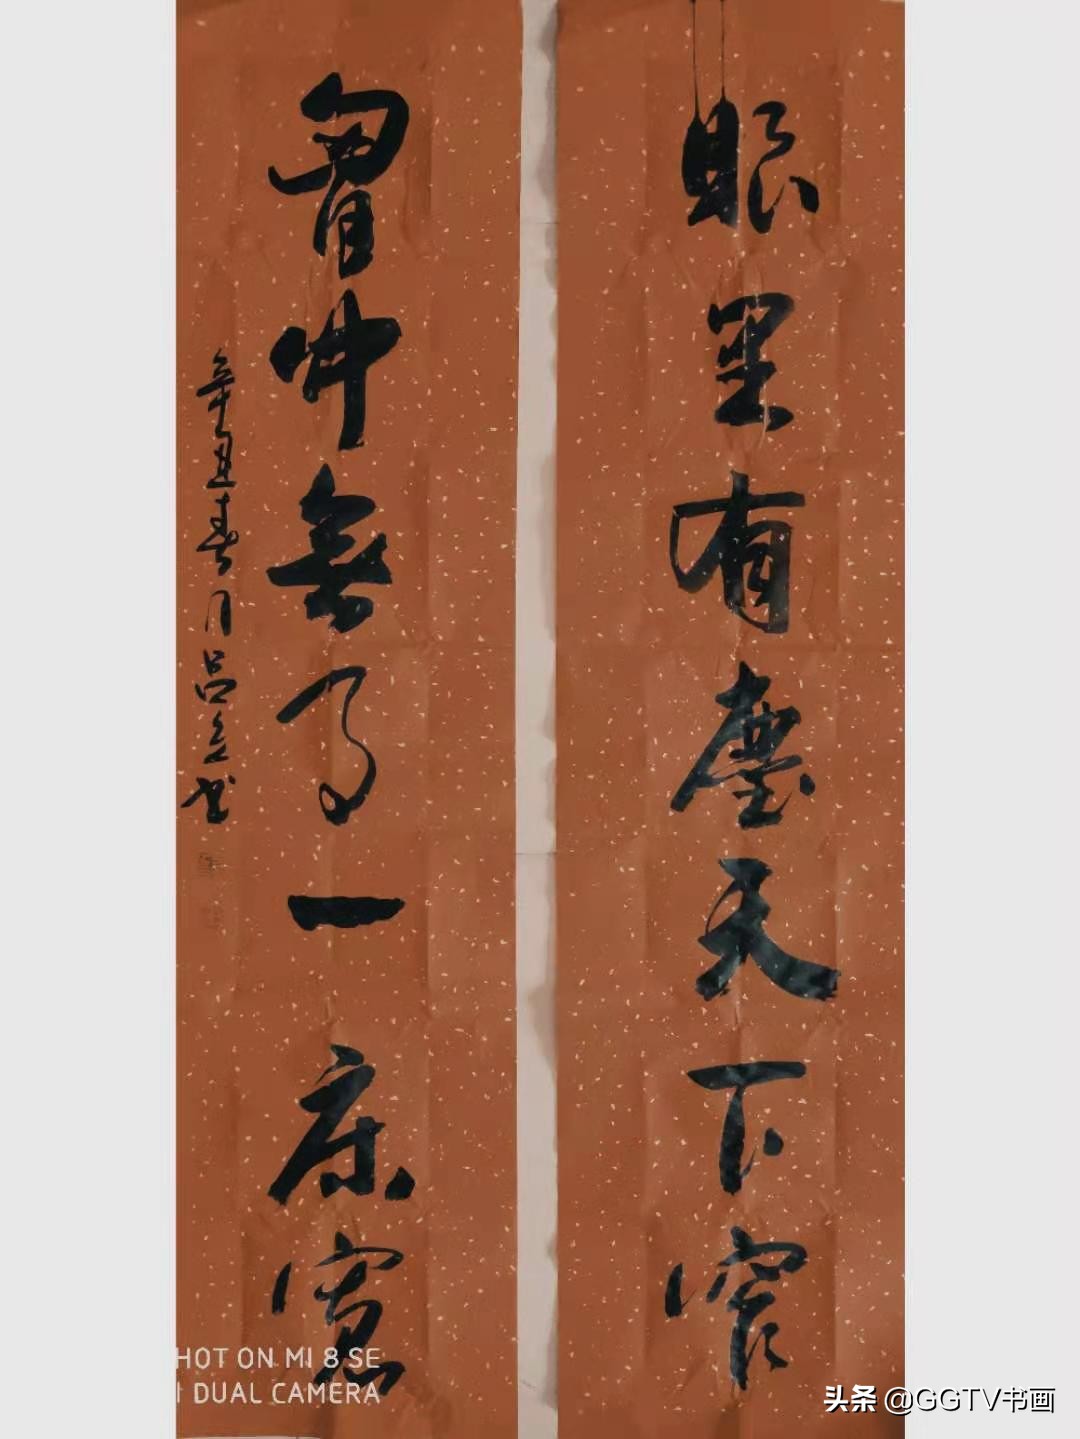 眼里有塵天下窄
胷中無事一床寬
辛丑春月吕立书
SHOT ON MI 8 SE
AI DUAL CAMERA
头条 @GGTV书画